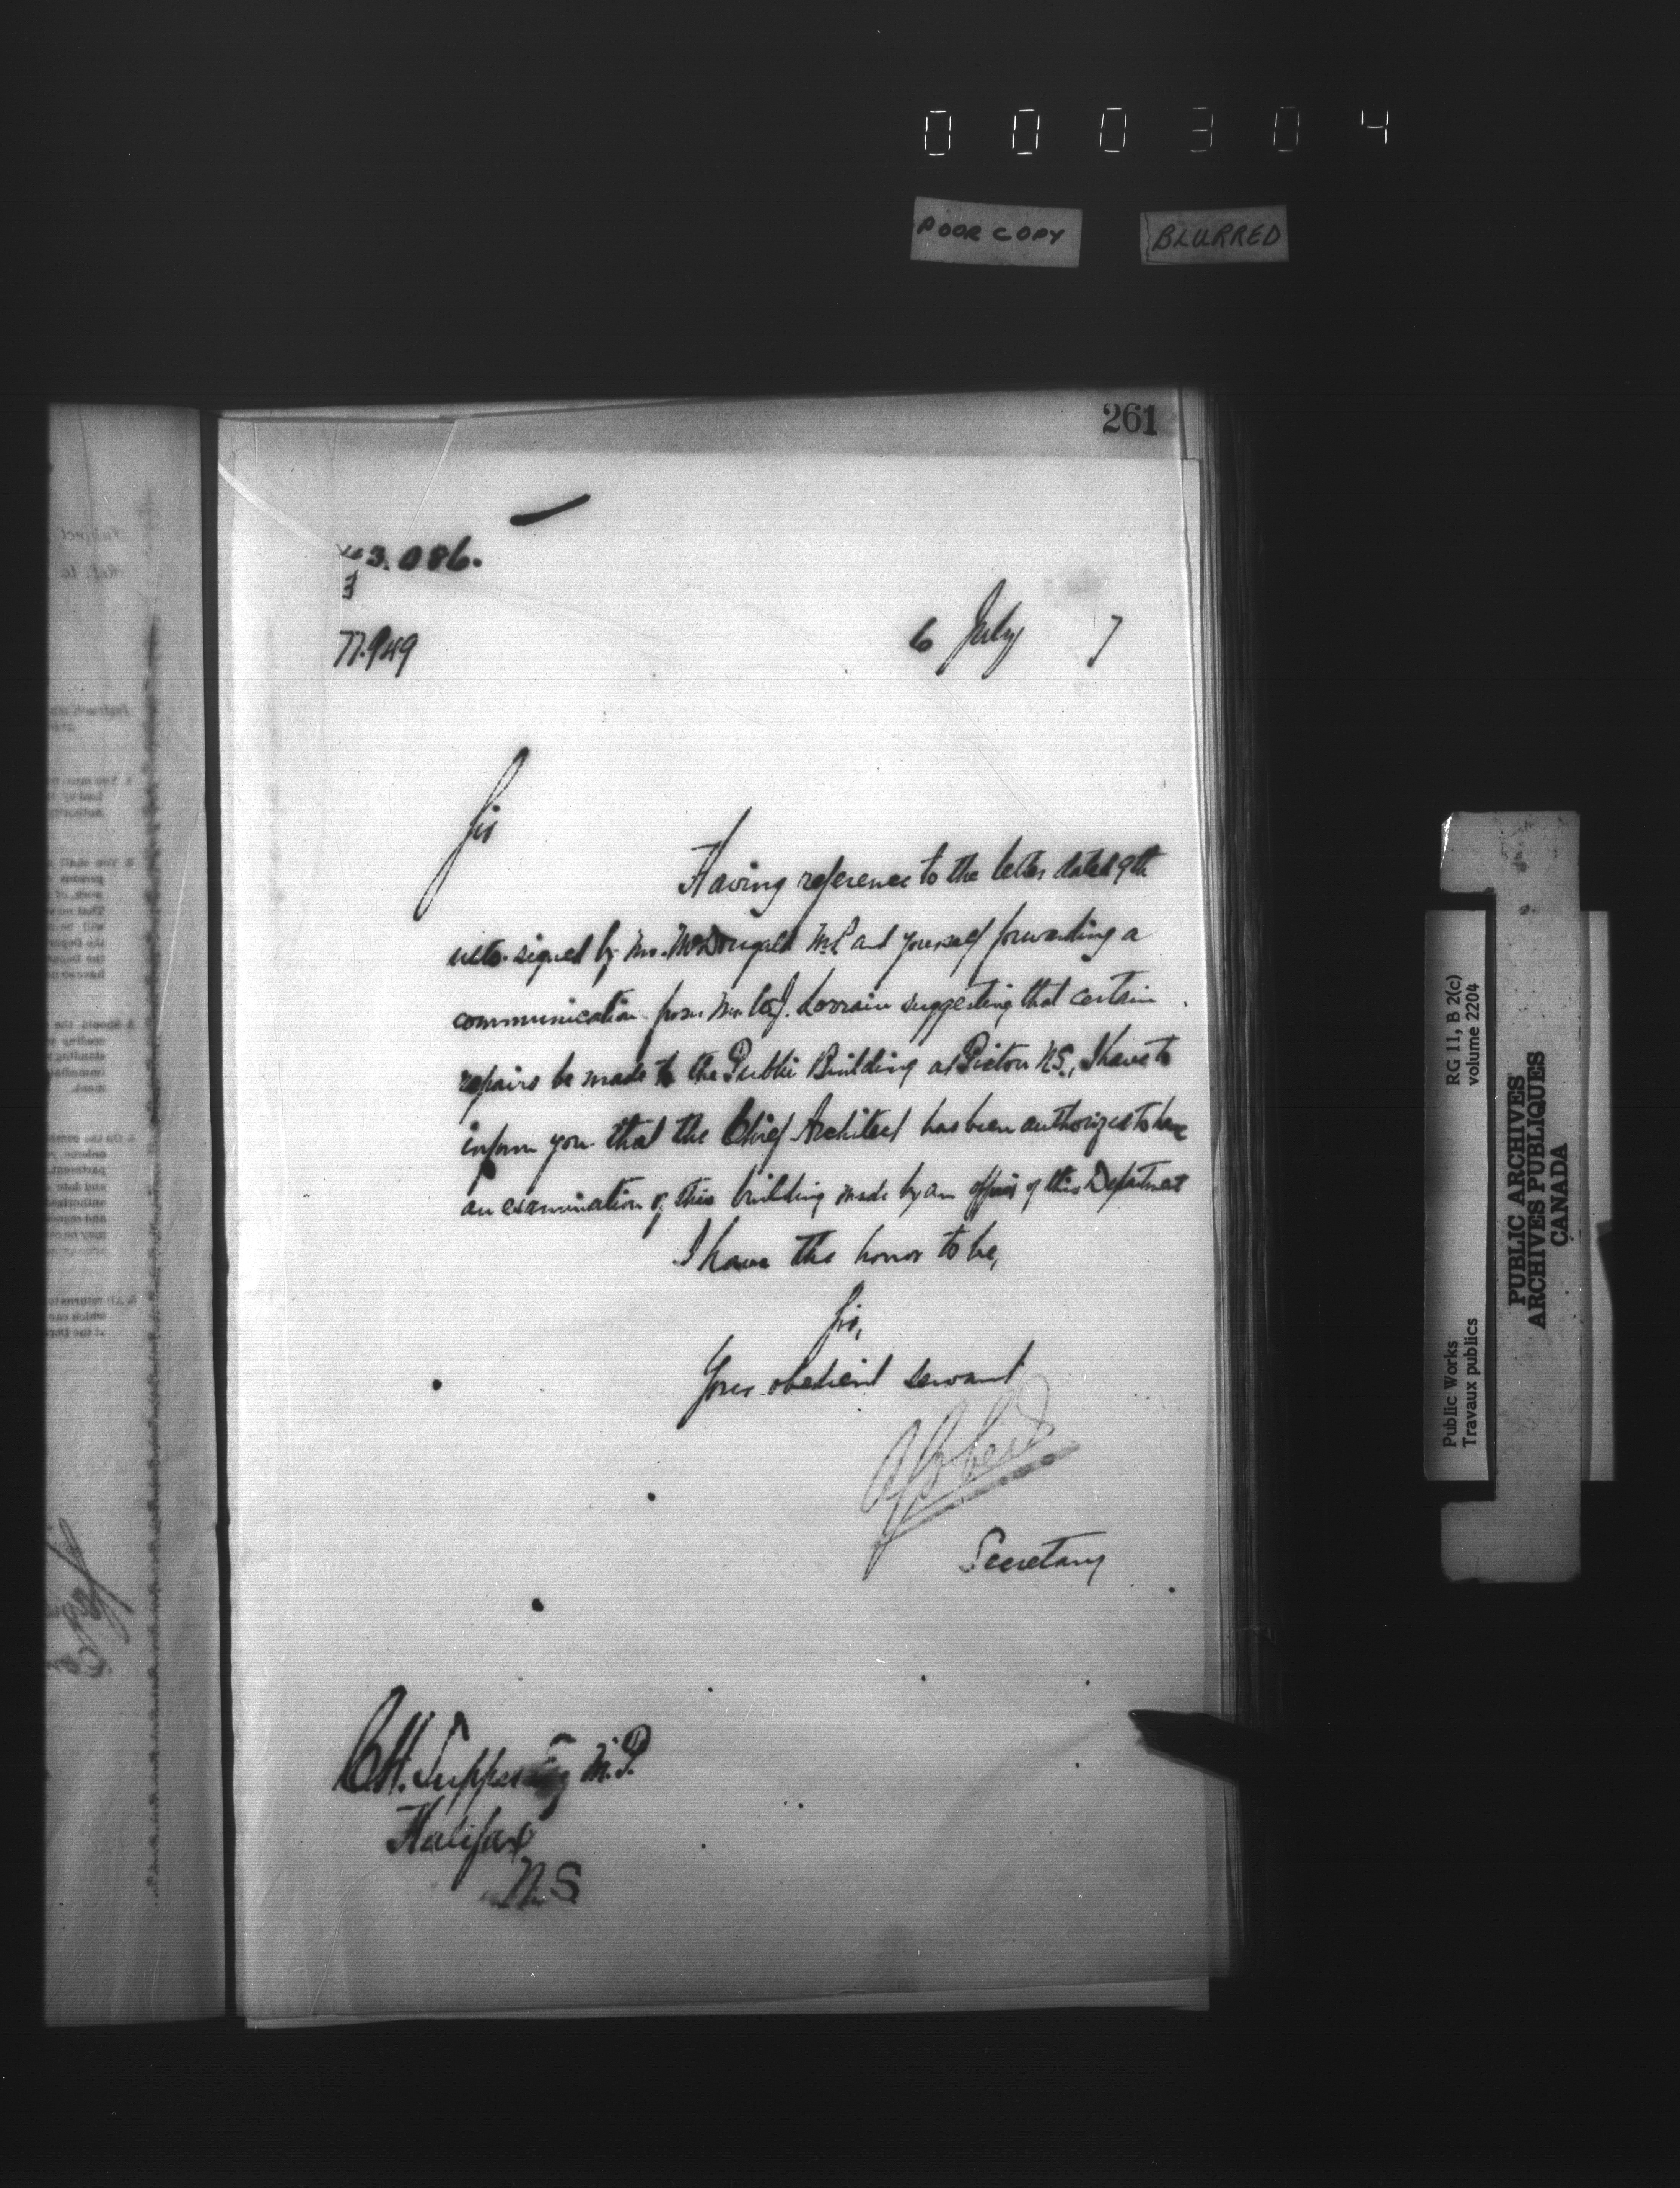 000304
POOR COPY
BLURRED
261
3.086.
77.949
6 July 7
Sir
Having reference to the letter dated 9th
ulto. signed by Mr. McDougald M.P. and yourself forwarding a
communication from Mr. Lorrain suggesting that certain
repairs be made to the Public Building at Pictou N.S., I have to
inform you that the Chief Architect has been authorized to have
an examination of this building made by an officer of this Department
I have the honor to be,
Sir,
Your obedient servant
Secretary
C.H. Tupper Esq M.P.
Halifax
N.S
RG 11, B 2(c)
volume 2204
Public Works
Travaux publics
PUBLIC ARCHIVES
ARCHIVES PUBLIQUES
CANADA